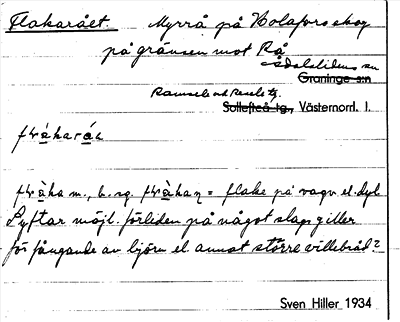 Flakarået. Myrrå på Holafors skog
på gränsen mot Rå
Ådalslidens sn
Graninge s:n
Ramsele och Resele tg.
Sollefteå tg., Västernord. l.
på vagn el. dyl.
Syftar möjl. förleden på något slags giller
för fångande av björn el. annat större villebråd?
Sven Hiller 1934